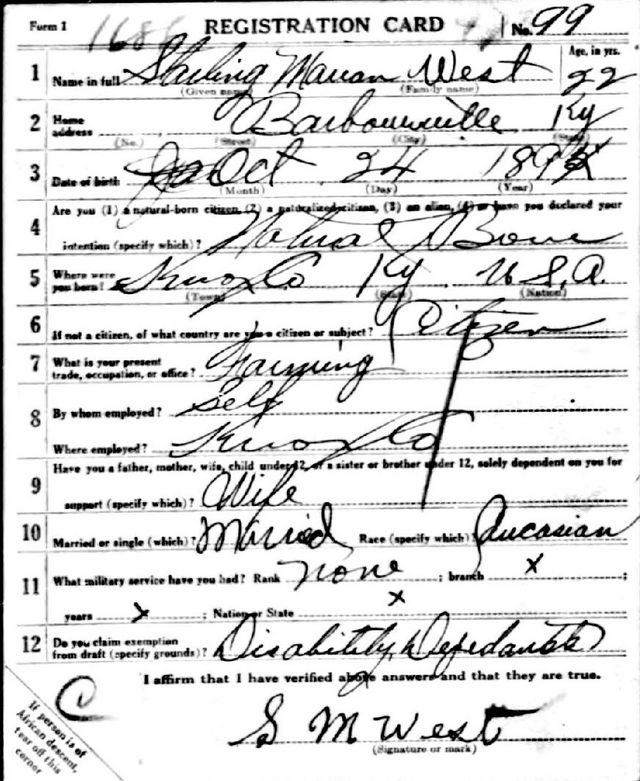 Form 1 168 REGISTRATION CARD No. 99
Age, in yrs.
1 Name in full Starling Marian West 22
(Given name) (Family name)
2 Home address Barbourville Ky
(No.) (Street) (City) (State)
3 Date of birth Oct 24 189
(Month) (Day) (Year)
4 Are you (1) a natural-born citizen, (2) a naturalized citizen, (3) an alien, (4) or have you declared your
intention (specify which)? Natural Born
5 Where were you born? Knox Co Ky U.S.A.
(Town) (State) (Nation)
6 If not a citizen, of what country are you a citizen or subject? Citizen
7 What is your present trade, occupation, or office? Farming
8 By whom employed? Self
Where employed? Knox Co
9 Have you a father, mother, wife, child under 12, or a sister or brother under 12, solely dependent on you for
support (specify which)? Wife
10 Married or single (which)? Married Race (specify which)? Caucasian
11 What military service have you had? Rank none ; branch x ;
years x ; Nation or State x
12 Do you claim exemption from draft (specify grounds)? Disability,
I affirm that I have verified above answers and that they are true.
C
S M West
(Signature or mark)
If person is of
African descent,
tear off this
corner